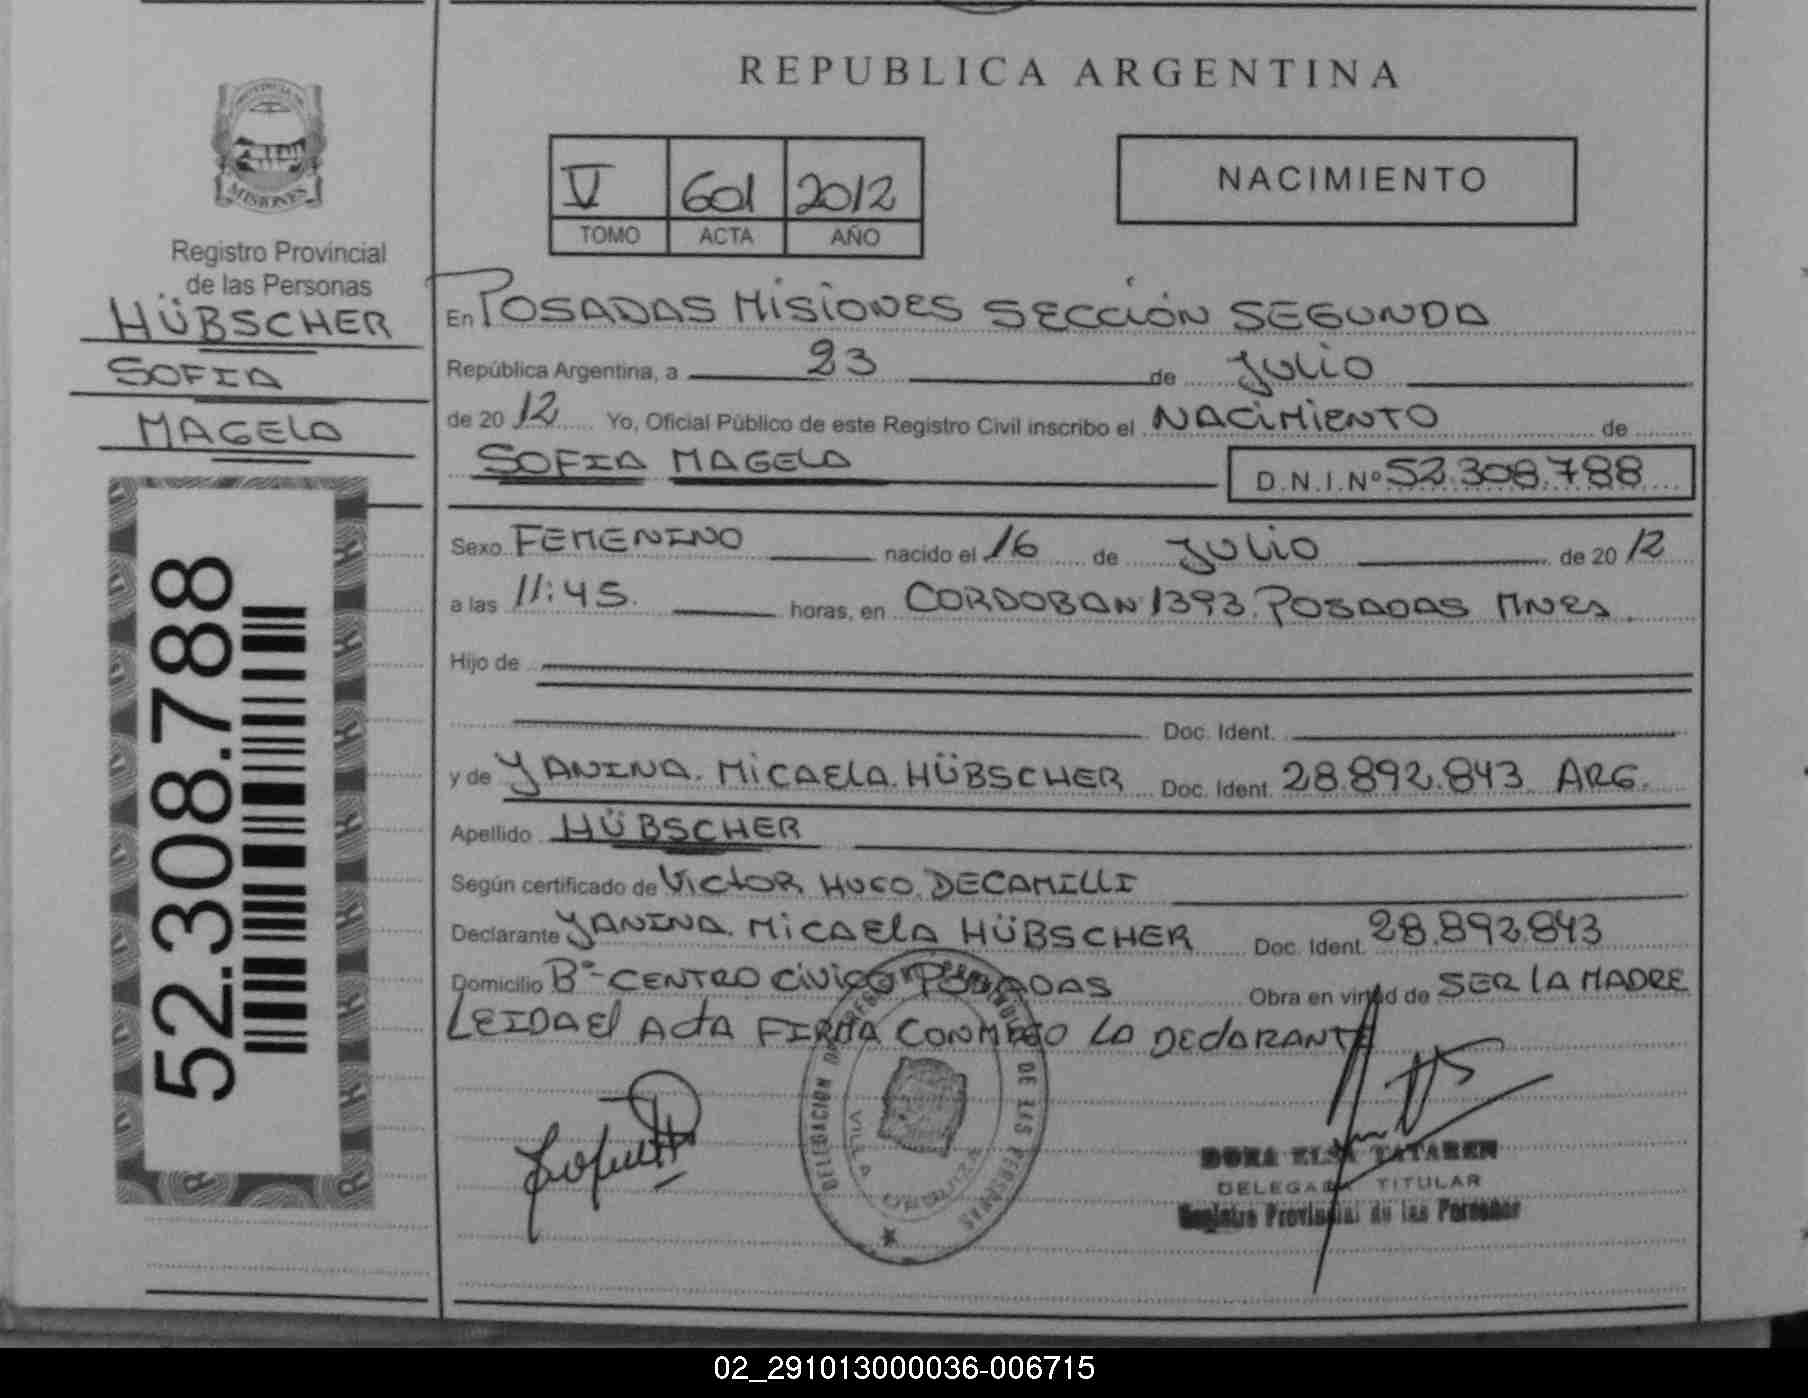 PROVINCIA DE
MISIONES
Registro Provincial
de las Personas
HÜBSCHER
SOFIA
MAGELA
52.308.788
REPUBLICA ARGENTINA
V 601 2012
TOMO ACTA AÑO
NACIMIENTO
En POSADAS MISIONES SECCIÓN SEGUNDA
República Argentina, a 23 de Julio
de 20 12 Yo, Oficial Público de este Registro Civil inscribo el NACIMIENTO de
SOFIA MAGELA D.N.I.Nº 52.308.788
Sexo FEMENINO nacido el 16 de Julio de 20 12
a las 11:45. horas, en CORDOBAN 1393. POSADAS MNES.
Hijo de
Doc. Ident.
y de YANINA. MICAELA. HÜBSCHER Doc. Ident. 28.892.843 ARG.
Apellido HÜBSCHER
Según certificado de VICTOR HUGO. DECAMILLI
Declarante YANINA. MICAELA HÜBSCHER Doc. Ident. 28.892.843
Domicilio Bº- CENTRO CÍVICO POSADAS Obra en virtud de SER LA MADRE
LEIDA El ACTA FIRMA CONMIGO LA DECLARANTE
DELEGACION DE LAS PERSONAS
VILLA URQUIZA
DORA ELSA TATAREN
DELEGADA TITULAR
Registro Provincial de las Personas
02_291013000036-006715